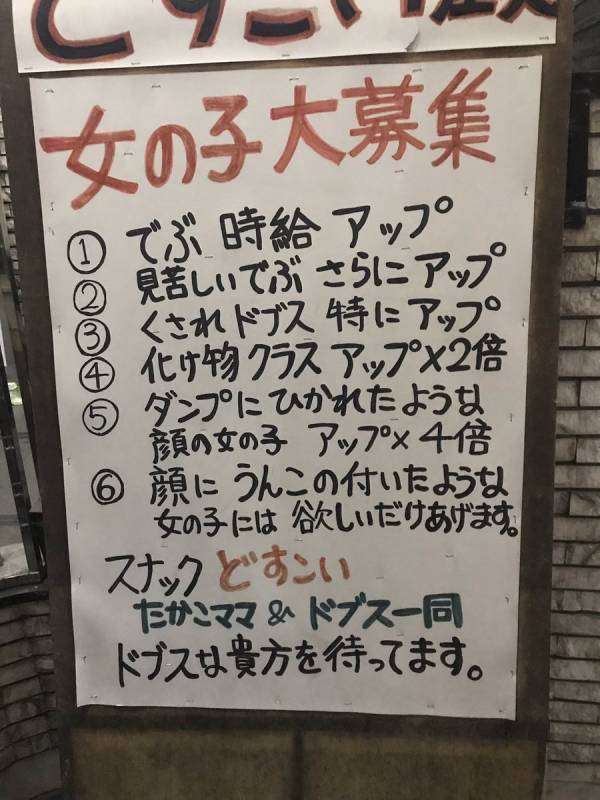 どすこい
女の子大募集
① でぶ 時給 アップ
② 見苦しいでぶ さらに アップ
③ くされドブス 特に アップ
④ 化け物クラス アップ×2倍
⑤ ダンプに ひかれたような
顔の女の子 アップ×4倍
⑥ 顔に うんこの付いたような
女の子には 欲しいだけあげます。
スナック どすこい
たかこママ & ドブス一同
ドブスな貴方を待ってます。